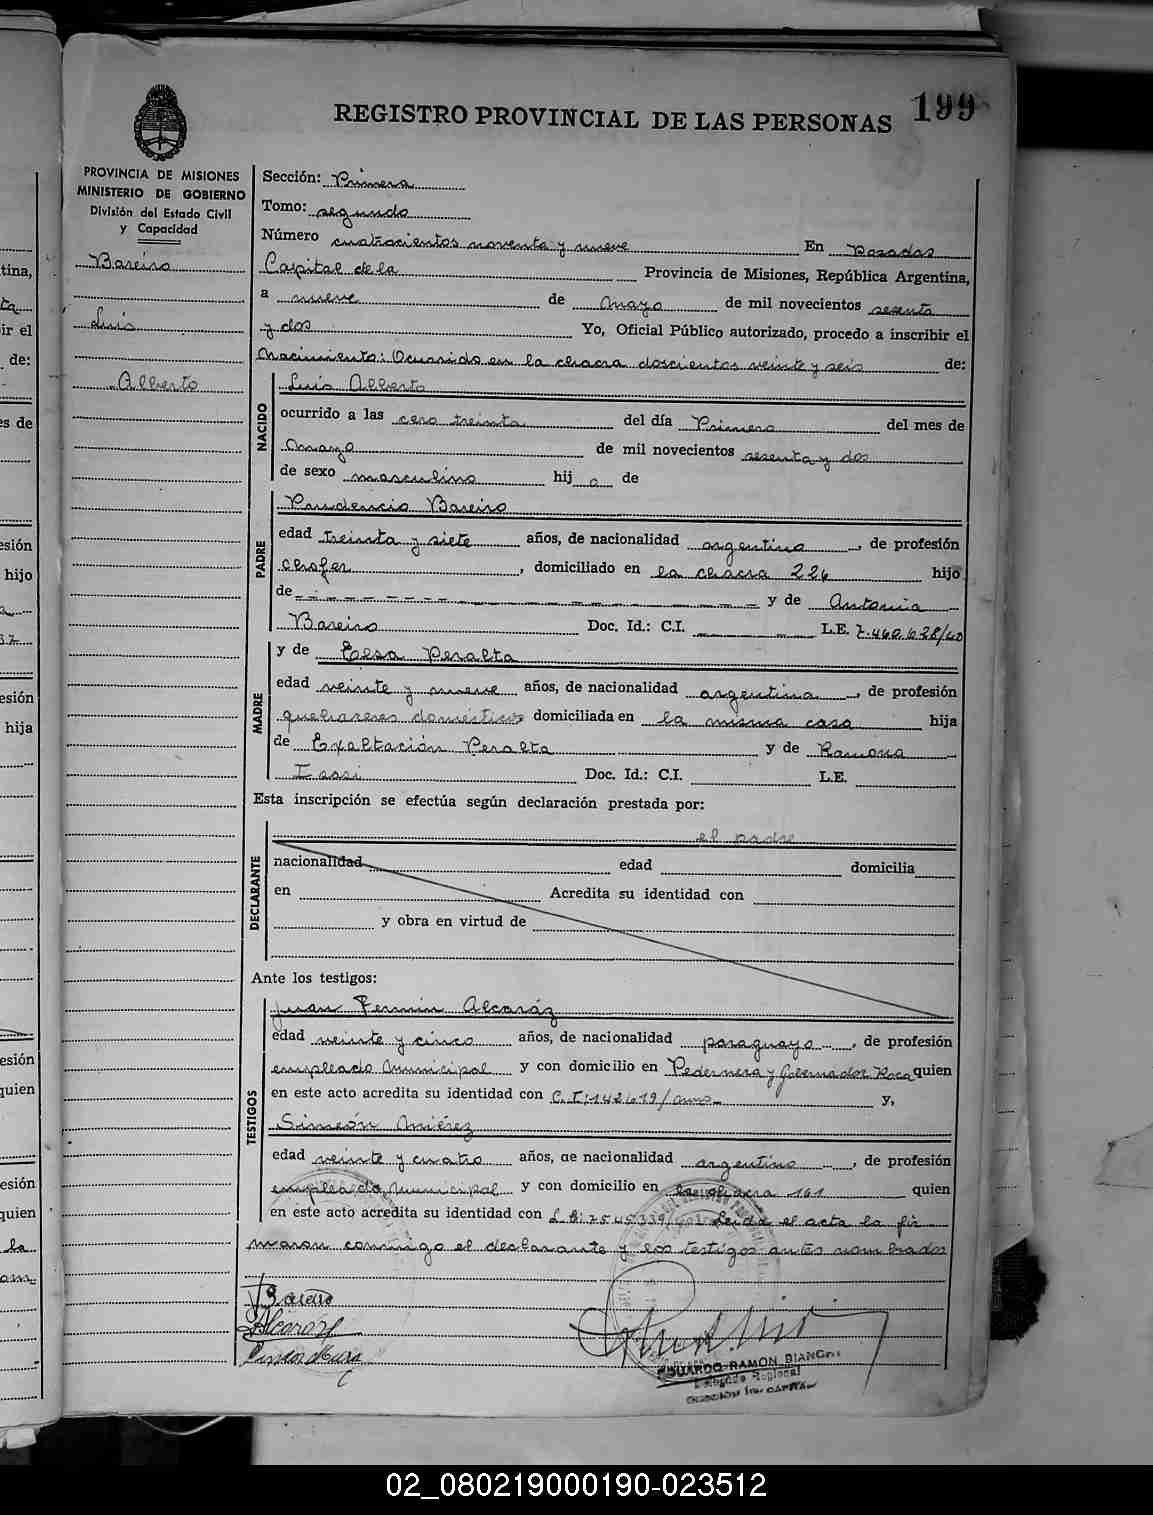 199
REGISTRO PROVINCIAL DE LAS PERSONAS
PROVINCIA DE MISIONES
MINISTERIO DE GOBIERNO
División del Estado Civil
y Capacidad
Bareiro
Luis
Alberto
Sección: Primera
Tomo: segundo
Número cuatrocientos noventa y nueve En Posadas
Capital de la Provincia de Misiones, República Argentina,
a nueve de mayo de mil novecientos sesenta
y dos Yo, Oficial Público autorizado, procedo a inscribir el
Nacimiento: Ocurrido en la chacra doscientos veinte y seis de:
NACIDO
Luis Alberto
ocurrido a las cero treinta del día Primero del mes de
de mil novecientos sesenta y dos
de sexo masculino hijo de
PADRE
Prudencio Bareiro
edad treinta y siete años, de nacionalidad argentino, de profesión
chofer, domiciliado en la chacra 226 hijo
de y de Antonia
Bareiro Doc. Id.: C.I. L.E. 7.460.628/40
MADRE
y de Elsa Peralta
edad veinte y nueve años, de nacionalidad argentina, de profesión
quehaceres domésticos domiciliada en la misma casa hija
de Exaltación Peralta y de Ramona
Doc. Id.: C.I. L.E.
Esta inscripción se efectúa según declaración prestada por:
DECLARANTE
el padre
nacionalidad edad domicilia
en Acredita su identidad con
y obra en virtud de
Ante los testigos:
TESTIGOS
Juan Fermin Alcaráz
edad veinte y cinco años, de nacionalidad paraguayo, de profesión
empleado Municipal y con domicilio en Pedernera y Gobernador Roca quien
en este acto acredita su identidad con C.I: 142619/ y,
Simeón
edad veinte y cuatro años, de nacionalidad argentino, de profesión
empleado Municipal y con domicilio en la chacra 161 quien
en este acto acredita su identidad con L.E: 7545339/ Leida el acta la fir
maron conmigo el declarante y los testigos antes nombrados
Bareiro
Alcaraz
EDUARDO RAMON BIANCHI
Delegado Regional
02_080219000190-023512